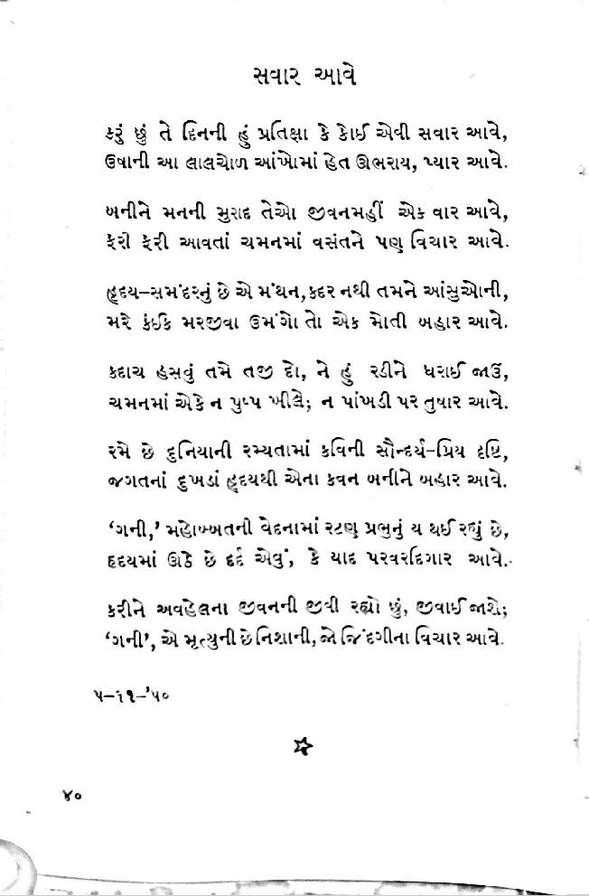 સવાર આવે
કરું છું તે દિનની હું પ્રતિક્ષા કે કોઈ એવી સવાર આવે,
ઉષાની આ લાલચોળ આંખોમાં હેત ઊભરાય, પ્યાર આવે.
બનીને મનની મુરાદ તેઓ જીવનમહીં એક વાર આવે,
ફરી ફરી આવતાં ચમનમાં વસંતને પણ વિચાર આવે.
હૃદય–સમંદરનું છે એ મંથન, કદર નથી તમને આંસુઓની,
મરે કંઈક મરજીવા ઉમંગો તો એક મોતી બહાર આવે.
કદાચ હસવું તમે તજી દો, ને હું રડીને ધરાઈ જાઉં,
ચમનમાં એકે ન પુષ્પ ખીલે; ન પાંખડી પર તુષાર આવે.
રમે છે દુનિયાની રમ્યતામાં કવિની સૌન્દર્ય–પ્રિય દૃષ્ટિ,
જગતનાં દુખડાં હૃદયથી એના કવન બનીને બહાર આવે.
‘ગની,’ મહોબ્બતની વેદનામાં રટણ પ્રભુનું ય થઈ રહ્યું છે,
હૃદયમાં ઊઠે છે દર્દ એવું, કે યાદ પરવરદિગાર આવે.
કરીને અવહેલના જીવનની જીવી રહ્યો છું, જીવાઈ જાશે;
‘ગની’, એ મૃત્યુની છે નિશાની, જો જિંદગીના વિચાર આવે.
૫–૧૧–’૫૦
૪૦